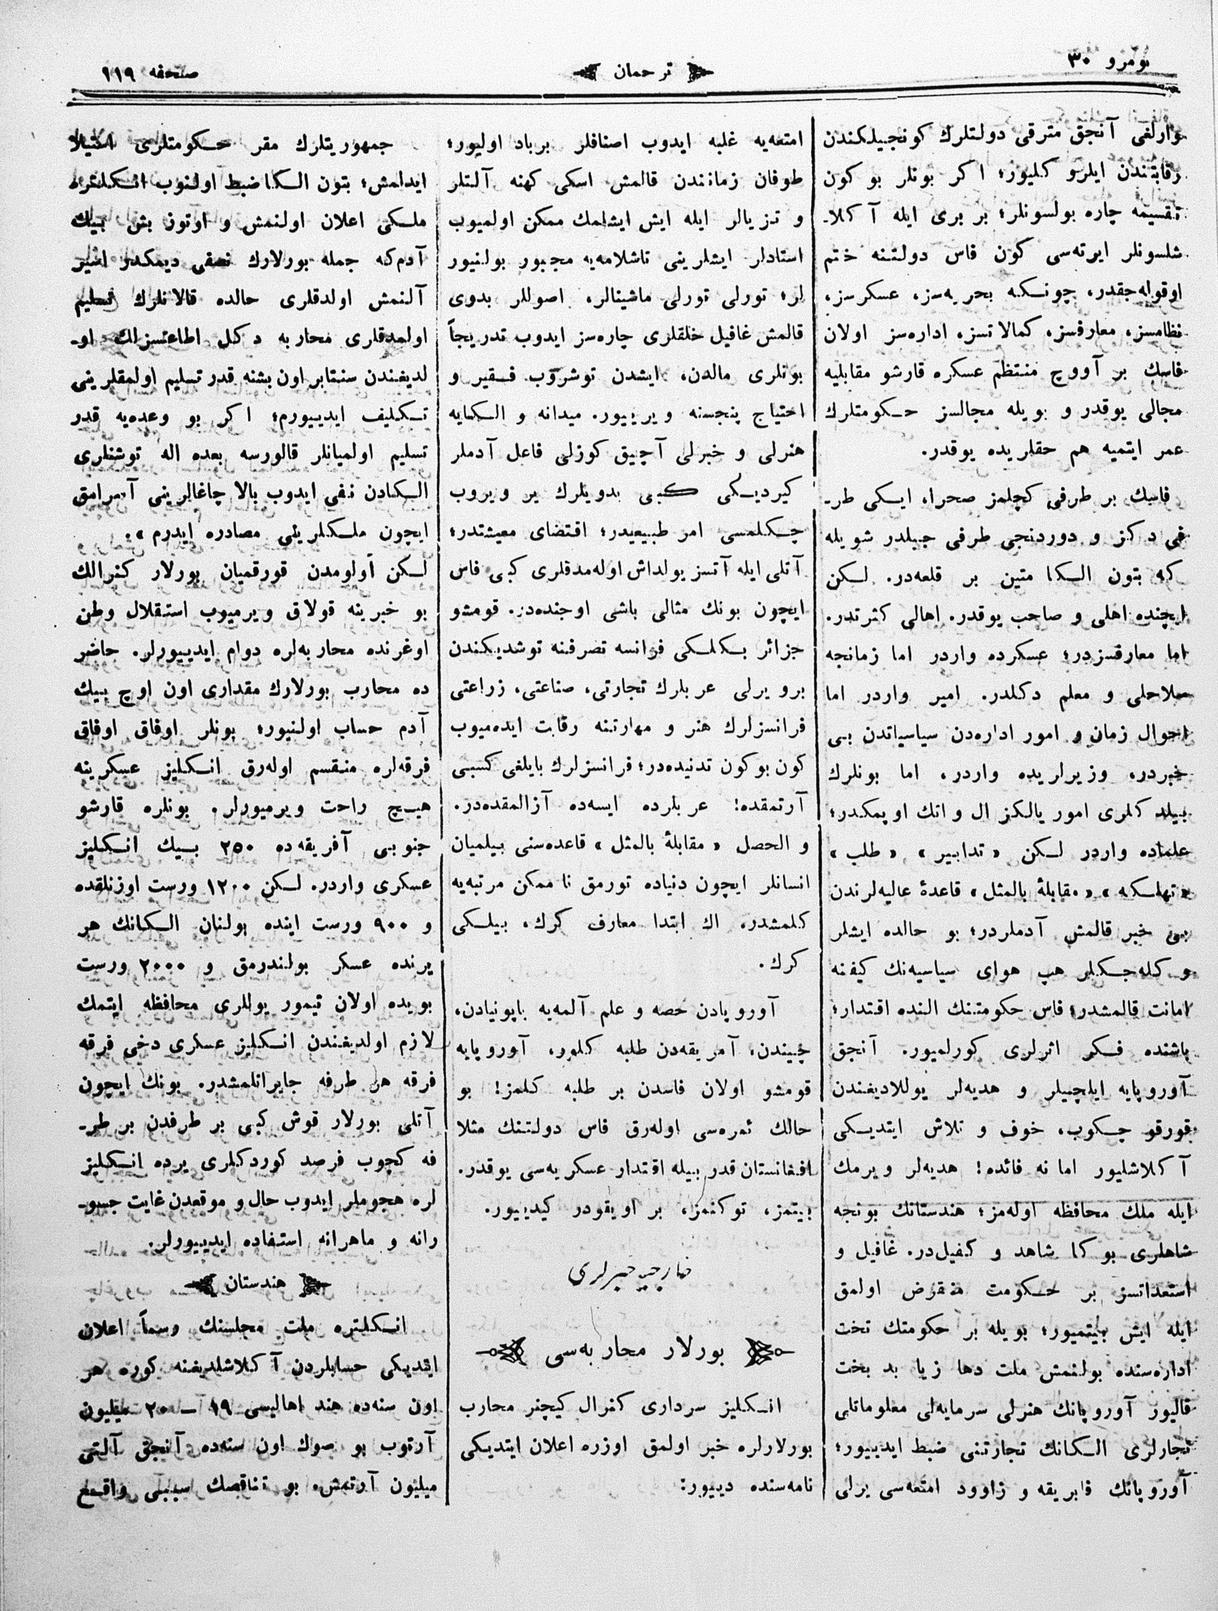 نومرو ۳۰
ترجمان
صحفه ۱۱۹
وارلغی آنجق مترقی دولتلرك كونجیلكندن
رقابتندن ایلرو كلیور؛ اكر بونلر بو كون
تقسیمه چاره بولسونلر؛ بر بری ایله آكلا-
شلسونلر ایرته‌سی كون فاس دولتنه ختم
اوقوله‌جقدر، چونكه بحریه‌سز، عسكرسز،
نظامسز، معارفسز، كمالاتسز، اداره‌سز اولان
فاسك بر آووچ منتظم عسكره قارشو مقابلیه
مجالی یوقدر و بویله مجالسز حكومتلرك
عمر ایتمیه هم حقلریده یوقدر.
فاسك بر طرفی كچلمز صحرا، ایكی طر-
فی دكز و دوردنجی طرفی جبلدر شویله
كه بتون الكا متین بر قلعه‌در. لكن
ایچنده اهلی و صاحب یوقدر. اهالی كثرتدر.
اما معارفسزدر؛ عسكرده واردر اما زمانجه
سلاحلی و معلم دكلدر. امیر واردر اما
احوال زمان و امور اداره‌دن سیاسیاتدن بی
خبردر، وزیرلریده واردر، اما بونلرك
بیلدكلری امور یالكز ال و اتك اوپمكدر؛
علماده واردر لكن « تدابیر » « طلب »
« تهلكه » « مقابلهٔ بالمثل » قاعدهٔ عالیه‌لرندن
بی خبر قالمش آدملردر؛ بو حالده ایشلر
و كله‌جكلر هپ هوای سیاسیه‌نك كیفنه
امانت قالمشدر؛ فاس حكومتنك النده اقتدار؛
باشنده فكر اثرلری كورلمیور. آنجق
آوروپایه ایلچیلر و هدیه‌لر یوللادیغندن
قورقو چكوب، خوف و تلاش ایتدیكی
آكلاشلیور اما نه فائده! هدیه‌لر ویرمك
ایله ملك محافظه اوله‌مز؛ هندستانك بونجه
شاهلری بوكا شاهد و كفیل‌در. غافیل و
استعداتسز بر حكومت منقرض اولمق
ایله ایش بیتمیور؛ بویله بر حكومتك تخت
اداره‌سنده بولنمش ملت دها زیا بد بخت
قالیور آوروپانك هنرلی سرمایه‌لی معلوماتلی
تجارلری الكانك تجارتنی ضبط ایدییور؛
آوروپانك فابریقه و زاوود امتعه‌سی یرلی
امتعه‌یه غلبه ایدوب اصنافلر برباد اولیور؛
طوفان زمانندن قالمش اسكی كهنه آلتلر
و تزیالر ایله ایش ایشلمك ممكن اولمیوب
استادلر ایشلرینی تاشلامه‌یه مجبور بولنیور
لر؛ تورلی تورلی ماشینالر، اصوللر بدوی
قالمش غافیل خلقلری چاره‌سز ایدوب تدریجاً
بونلری مالدن، ایشدن توشروب فقیر و
احتیاج پنجسنه ویرییور. میدانه و الكایه
هنرلی و خبرلی آچیق كوزلی فاعل آدملر
كیردیكی كبی بدویلرك یر ویروب
چكلمسی امر طبیعیدر؛ اقتضای معیشتدر؛
آتلی ایله آتسز یولداش اوله‌مدقلری كبی فاس
ایچون بونك مثالی باشی اوجنده‌در. قومشو
جزائر بكلكی فرانسه تصرفنه توشدیكندن
برو یرلی عربلرك تجارتی، صناعتی، زراعتی
فرانسزلرك هنر و مهارتنه رقابت ایده‌میوب
كون بوكون تدنیده‌در؛ فرانسزلرك بایلغی كسبی
آرتمقده! عربلرده ایسه‌ده آزالمقده‌در.
و الحصل « مقابلهٔ بالمثل » قاعده‌سنی بیلمیان
انسانلر ایچون دنیاده تورمق نا ممكن مرتبه‌یه
كلمشدر، اك ابتدا معارف كرك، بیلكی
كرك.
آوروپادن حصه و علم آلمه‌یه یاپونیادن،
چیندن، آمریقه‌دن طلبه كلور، آوروپایه
قومشو اولان فاسدن بر طلبه كلمز! بو
حالك ثمره‌سی اوله‌رق فاس دولتنك مثلا
افغانستان قدر بیله اقتدار عسكریه‌سی یوقدر.
بیتمز، توكنمز، بر اویقودر كیدییور.
خارجیه خبرلری
بورلار محاربه‌سی
انكلیز سرداری كنرال كیچنر محارب
بورلارلره خبر اولمق اوزره اعلان ایتدیكی
نامه‌سنده دییور:
جمهوریتلرك مقر حكومتلری استیلا
ایدلمش؛ بتون الكا ضبط اولنوب انكلتره
ملكی اعلان اولنمش و اوتوز بش بیك
آدم‌كه جمله بورلارك نصفی دیمكدر اسیر
آلنمش اولدقلری حالده قالانلرك تسلیم
اولمدقلری محاربه دكل اطاعتسزلك او-
لدیغندن سنتابر اون بشنه قدر تسلیم اولمقلرینی
تكلیف ایدییورم؛ اكر بو وعده‌یه قدر
تسلیم اولمیانلر قالورسه بعده اله توشنلری
الكادن نفی ایدوب بالا چاغالرینی آصرامق
ایچون ملكلرینی مصادره ایدرم ».
لكن اولومدن قورقمیان بورلار كنرالك
بو خبرینه قولاق ویرمیوب استقلال وطن
اوغرنده محاربه‌لره دوام ایدییورلر. حاضر
ده محارب بورلارك مقداری اون اوچ بیك
آدم حساب اولنیور؛ بونلر اوفاق اوفاق
فرقه‌لره منقسم اوله‌رق انكلیز عسكرینه
هیچ راحت ویرمیورلر. بونلره قارشو
جنوبی آفریقه‌ده ۲۵۰ بیك انكلیز
عسكری واردر. لكن ۱۲۰۰ ورست اوزنلقده
و ۹۰۰ ورست اینده بولنان الكانك هر
یرنده عسكر بولندرمق و ۲۰۰۰ ورست
بویده اولان تیمور یوللری محافظه ایتمك
لازم اولدیغندن انكلیز عسكری دخی فرقه
فرقه هر طرفه جایرانلمشدر. بونك ایچون
آتلی بورلار قوش كبی بر طرفدن بر طر-
فه كچوب فرصد كوردكلری یرده انكلیز
لره هجوملر ایدوب حال و موقعدن غایت جسو-
رانه و ماهرانه استفاده ایدییورلر.
هندستان
انكلتره ملت مجلسنك رسماً اعلان
ایتدیكی حسابلردن آكلاشلدیغنه كوره هر
اون سنه‌ده هند اهالیسی ۱۹ — ۲۰ میلیون
آرتوب بو صوك اون سنه‌ده آنجق آلتی
میلیون آرتمش. بو تناقصك سببی واقع